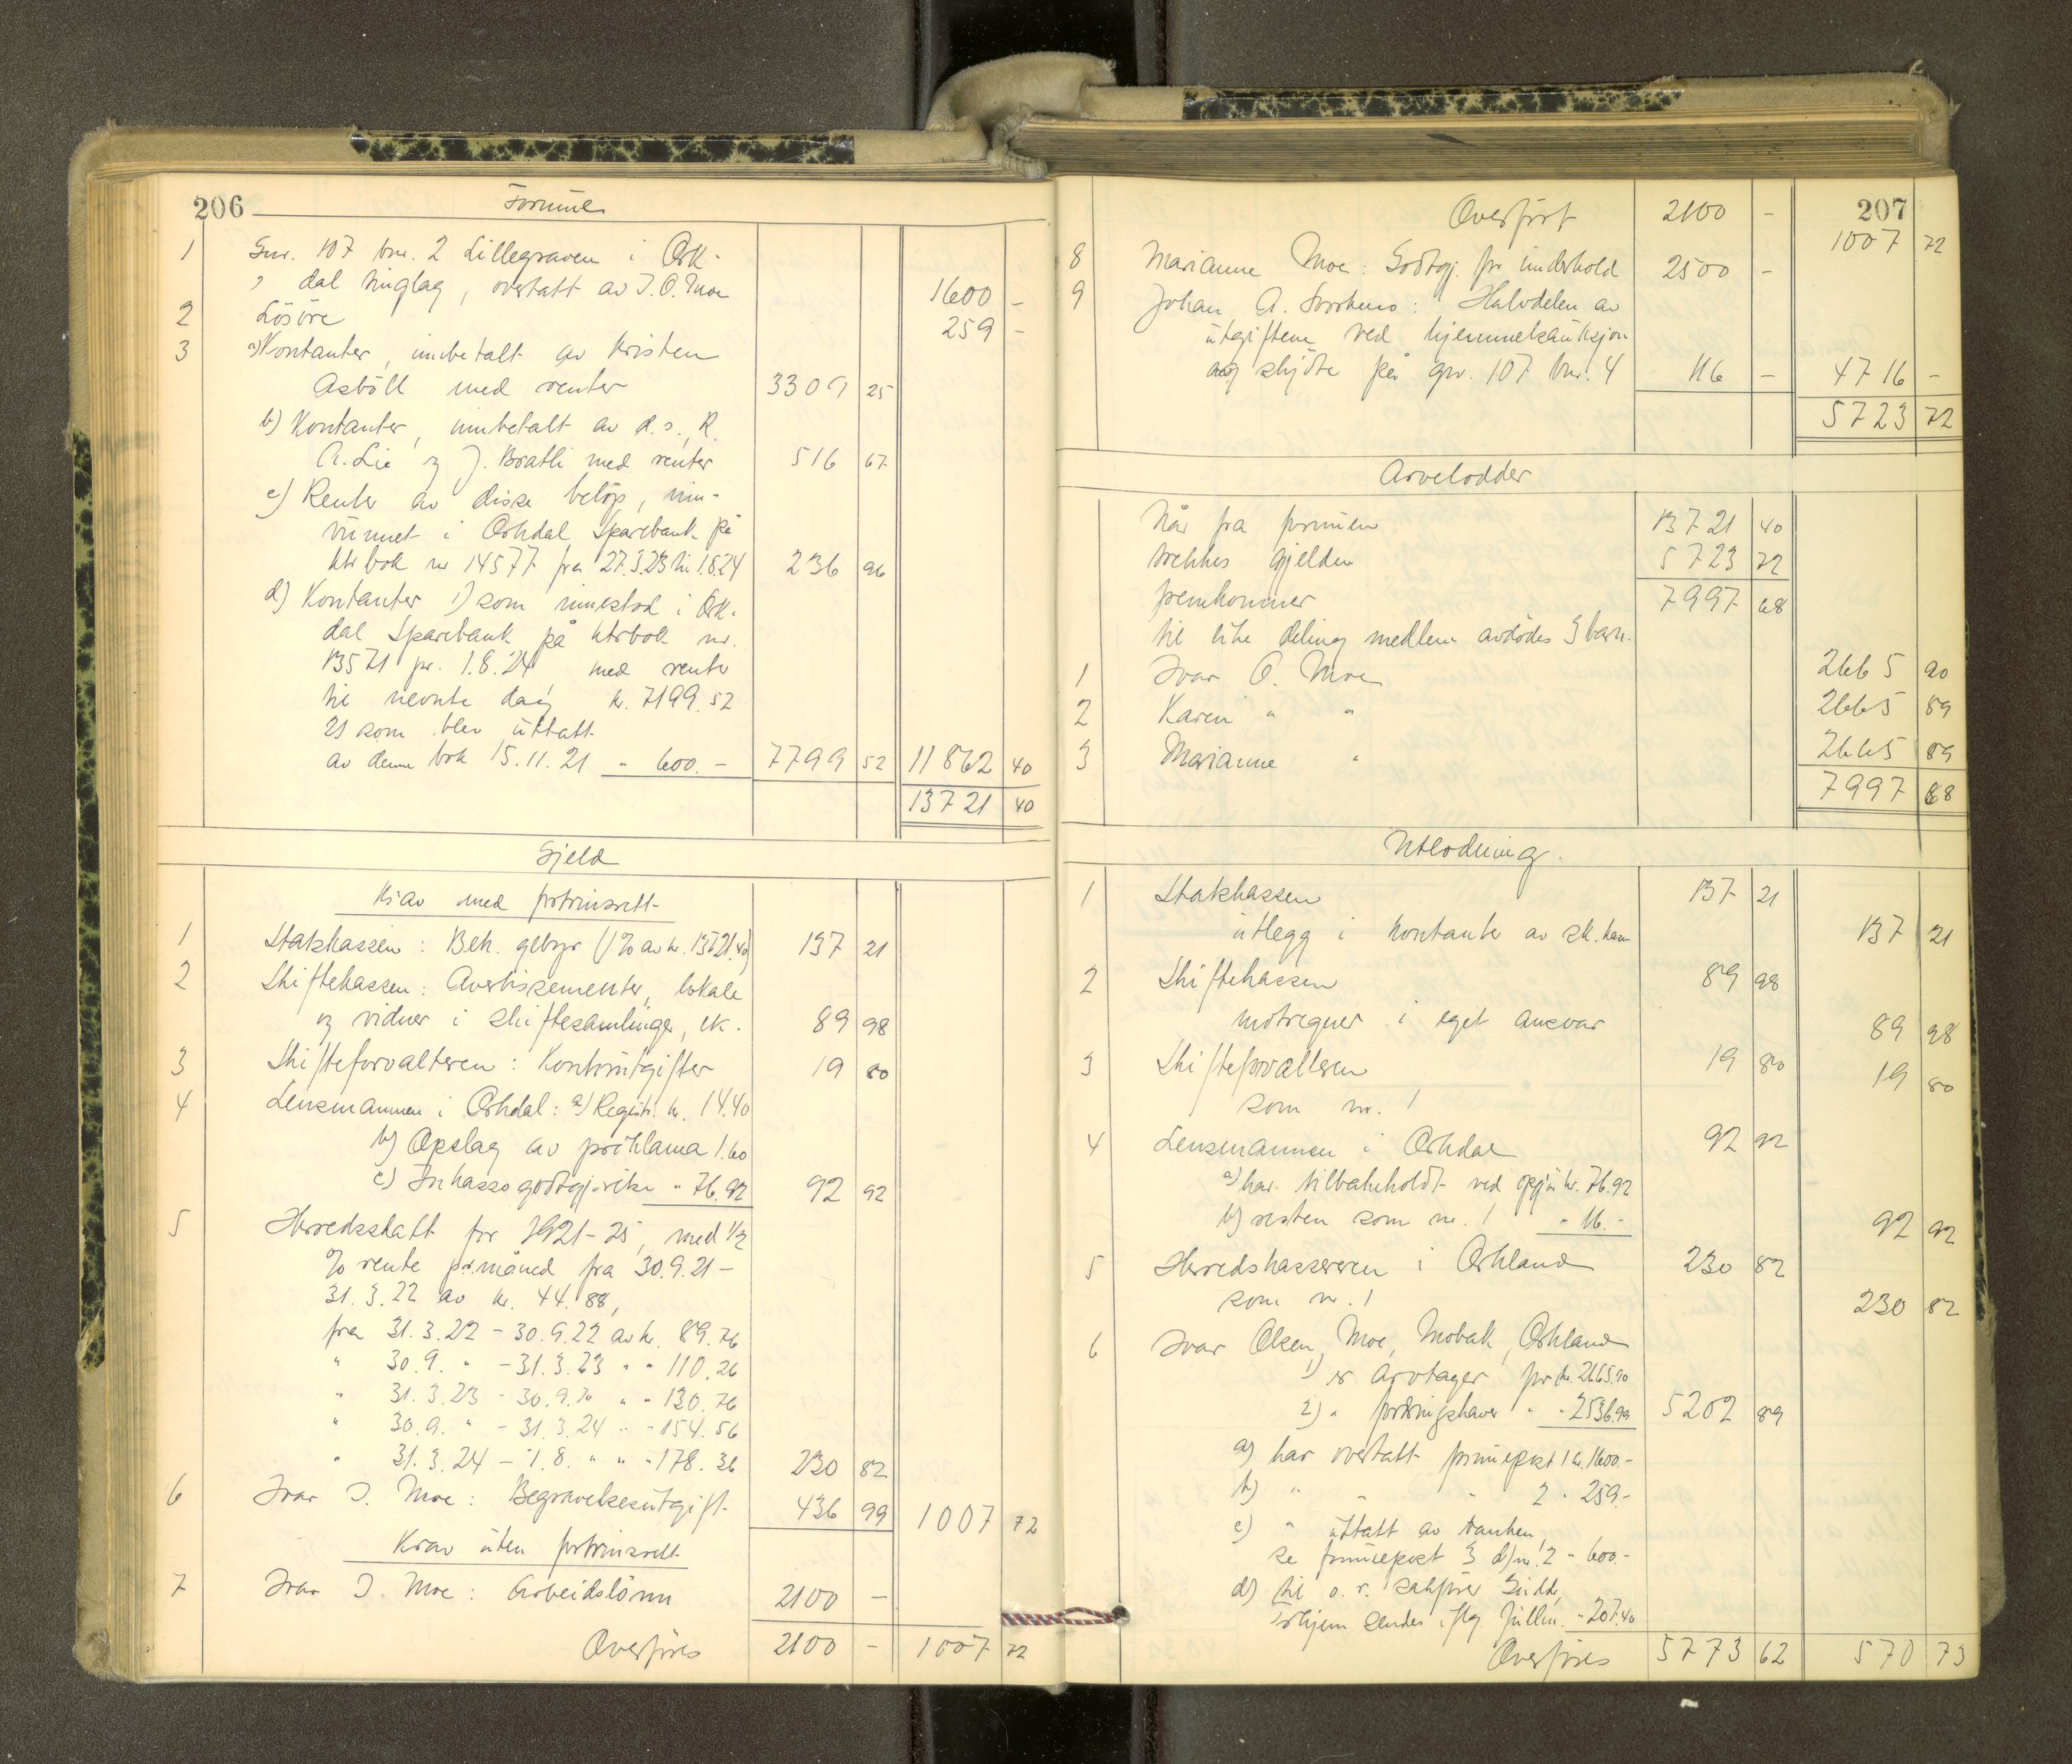 206
Formue
1 Gnr. 107 bnr. 2 Lillegraven i Ork-
dal tinglag, overtatt av I. O. Moe 1600 -
2 Lösöre 259 -
3 a) Kontanter, innbetalt av Kristen
Asböll med renter 3309 25
b) Kontanter, innbetalt av d. s., R.
A. Lie og J. Bratli med renter 516 67
c) Renter av disse belöp, inn-
vunnet i Orkdal Sparebank på
ktrbok nr 14577 fra 27.3.23 til 1.8.24 236 96
d) Kontanter 1) som innestod i Ork-
dal Sparebank på ktrbok nr.
13571 pr. 1.8.24, med rente
til nevnte dag kr. 7199.52
2) som blev uttatt
av denne bok 15.11.21 " 600.- 7799 52 11862 40
13721 40
Gjeld
Krav med fortrinsrett
1 Statskassen: Beh. gebyr (1% av kr. 13721.40) 137 21
2 Skiftekassen: Avertissementer, lokale
og vidner i skiftesamlinger, etc. 89 98
3 Skifteforvalteren: Kontorutgifter 19 80
4 Lensmannen i Orkdal: a) Registr. kr. 14.40
b) Opslag av proklama 1.60
c) Inkassogodtgjörelse " 76.92 92 92
5 Herredsskatt for 1921-25, med 1/2
% rente pr. måned fra 30.9.21 -
31.3.22 av kr. 44.88,
fra 31.3.22 - 30.9.22 av kr. 89.76
" 30.9. " - 31.3.23 " " 110.26
" 31.3.23 - 30.9. " " " 130.76
" 30.9. " - 31.3.24 " " 154.56
" 31.3.24 - 1.8. " " " 178.36 230 82
6 Ivar I. Moe: Begravelsesutgift 436 99 1007 72
Krav uten fortrinsrett
7 Ivar I. Moe: Arbeidslönn 2100 -
Overföres 2100 - 1007 72
207
Overfört 2100 - 1007 72
8 Marianne Moe: Godtgj. for underhold 2500 -
9 Johan A. Svorkmo: Halvdelen av
utgiftene ved hjemmelsauksjon
og skjöte på gnr. 107 bnr. 4 116 - 4716 -
5723 72
Arvelodder
Når fra formuen 13721 40
trekkes gjelden 5723 72
fremkommer 7997 68
til like deling mellem avdödes 3 barn.
1 Ivar O. Moe 2665 90
2 Karen " " 2665 89
3 Marianne " 2665 89
7997 68
Utlodning.
1 Statskassen 137 21
utlegg i kontanter av sk. kam 137 21
2 Skiftekassen 89 98
motregner i eget ansvar 89 98
3 Skifteforvalteren 19 80
som nr. 1 19 80
4 Lensmannen i Orkdal 92 92
a) har tilbakeholdt ved opgjör kr. 76.92
b) resten som nr. 1 " 16.- 92 92
5 Herredskassereren i Orkland 230 82
som nr. 1 230 82
6 Ivar Olsen Moe, Mobak, Orkland
1) er arvtager for kr. 2665.90
2) " fordringshaver " " 2536.99 5202 89
a) har overtatt formuepost 1 kr. 1600.-
b) " " " 2 " 259.-
c) " uttatt av banken,
se formuepost 3 d) nr. 2 - 600.-
d) til o. r. sakförer
sendes iflg. fullm. - 207.40
Overföres 5773 62 570 73